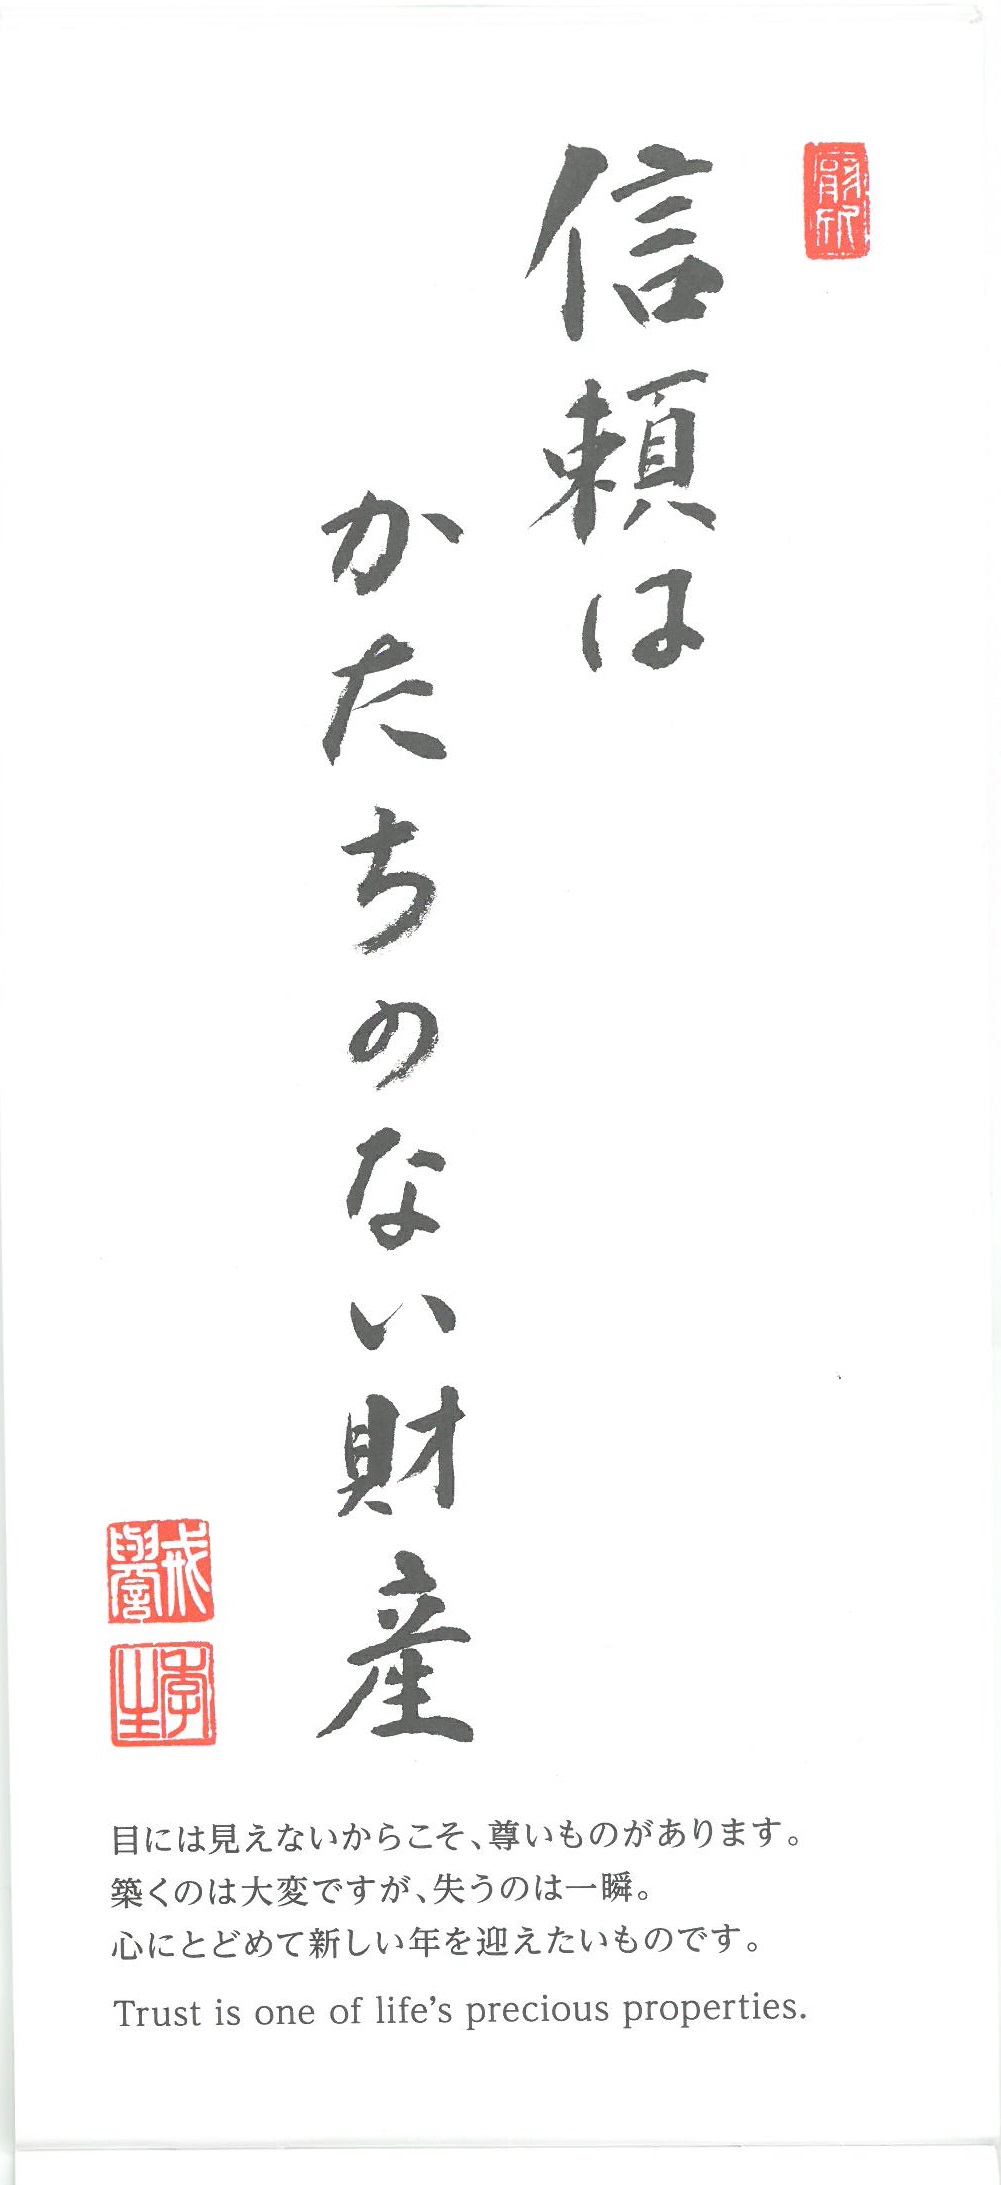 信頼は
かたちのない財産
目には見えないからこそ、尊いものがあります。
築くのは大変ですが、失うのは一瞬。
心にとどめて新しい年を迎えたいものです。
Trust is one of life's precious properties.